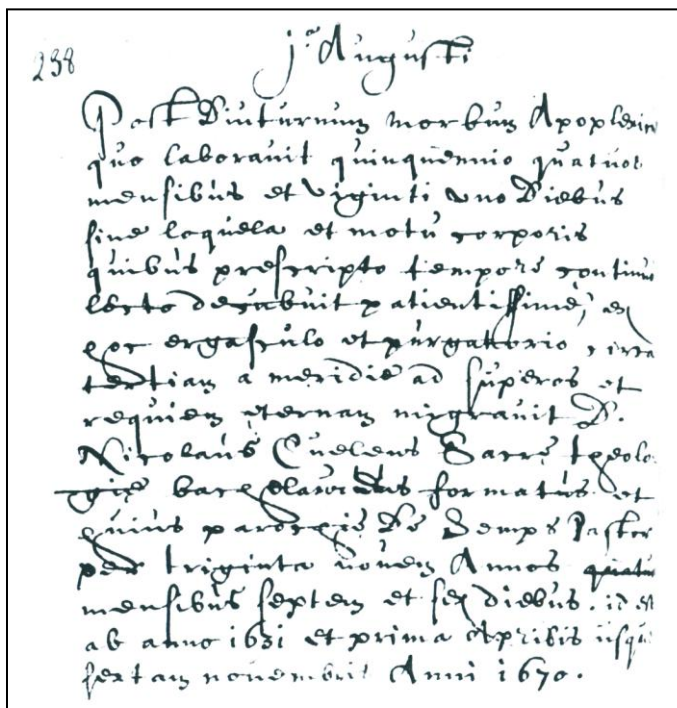 238
jª Augusti
Post Diuturnum morbum Apoplexie
quo laboravit quinquennio quatuor
mensibus et viginti uno Diebus
sine loquela et motu corporis
quibus prescripto tempore continuo
lecto decubuit patientissime, ex
hoc ergasculo et purgatorio, circa
tertiam a meridie ad superos et
requiem eternam migravit D.
Nicolaus Cuelens Sacre theolo
gie bachalaureus formatus et
huius parochie de Demps Pastor
per triginta novem Annos quatu
mensibus septem et sex diebus. id est
ab anno 1631 et prima Aprilis usque
sextam novembris Anni 1670.